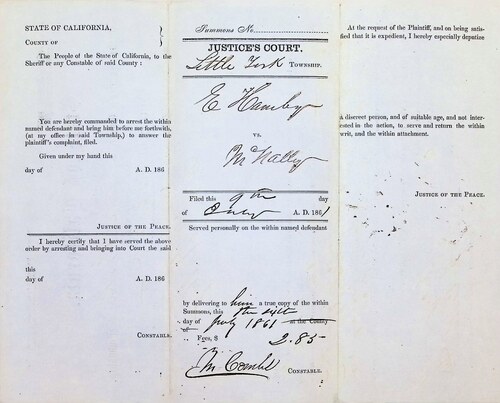 STATE OF CALIFORNIA,
COUNTY OF
The People of the State of California, to the
Sheriff or any Constable of said County :
You are hereby commanded to arrest the within
named defendant and bring him before me forthwith,
(at my office in said Township,) to answer the
plaintiff's complaint, filed.
Given under my hand this
day of A. D. 186
JUSTICE OF THE PEACE.
I hereby certify that I have served the above
order by arresting and bringing into Court the said
this
day of A. D. 186
CONSTABLE.
Summons No.
JUSTICE'S COURT.
Little York TOWNSHIP.
E Hamby
vs.
McNally
Filed this 9th day
of A. D. 1861
Served personally on the within named defendant
by delivering to him a true copy of the within
Summons, this the sixth
day of July 1861 at the County
of
Fees, $ 2.85
CONSTABLE.
At the request of the Plaintiff, and on being satis-
fied that it is expedient, I hereby especially depution
a discreet person, and of suitable age, and not inter-
ested in the action, to serve and return the within
writ, and the within attachment.
JUSTICE OF THE PEACE.